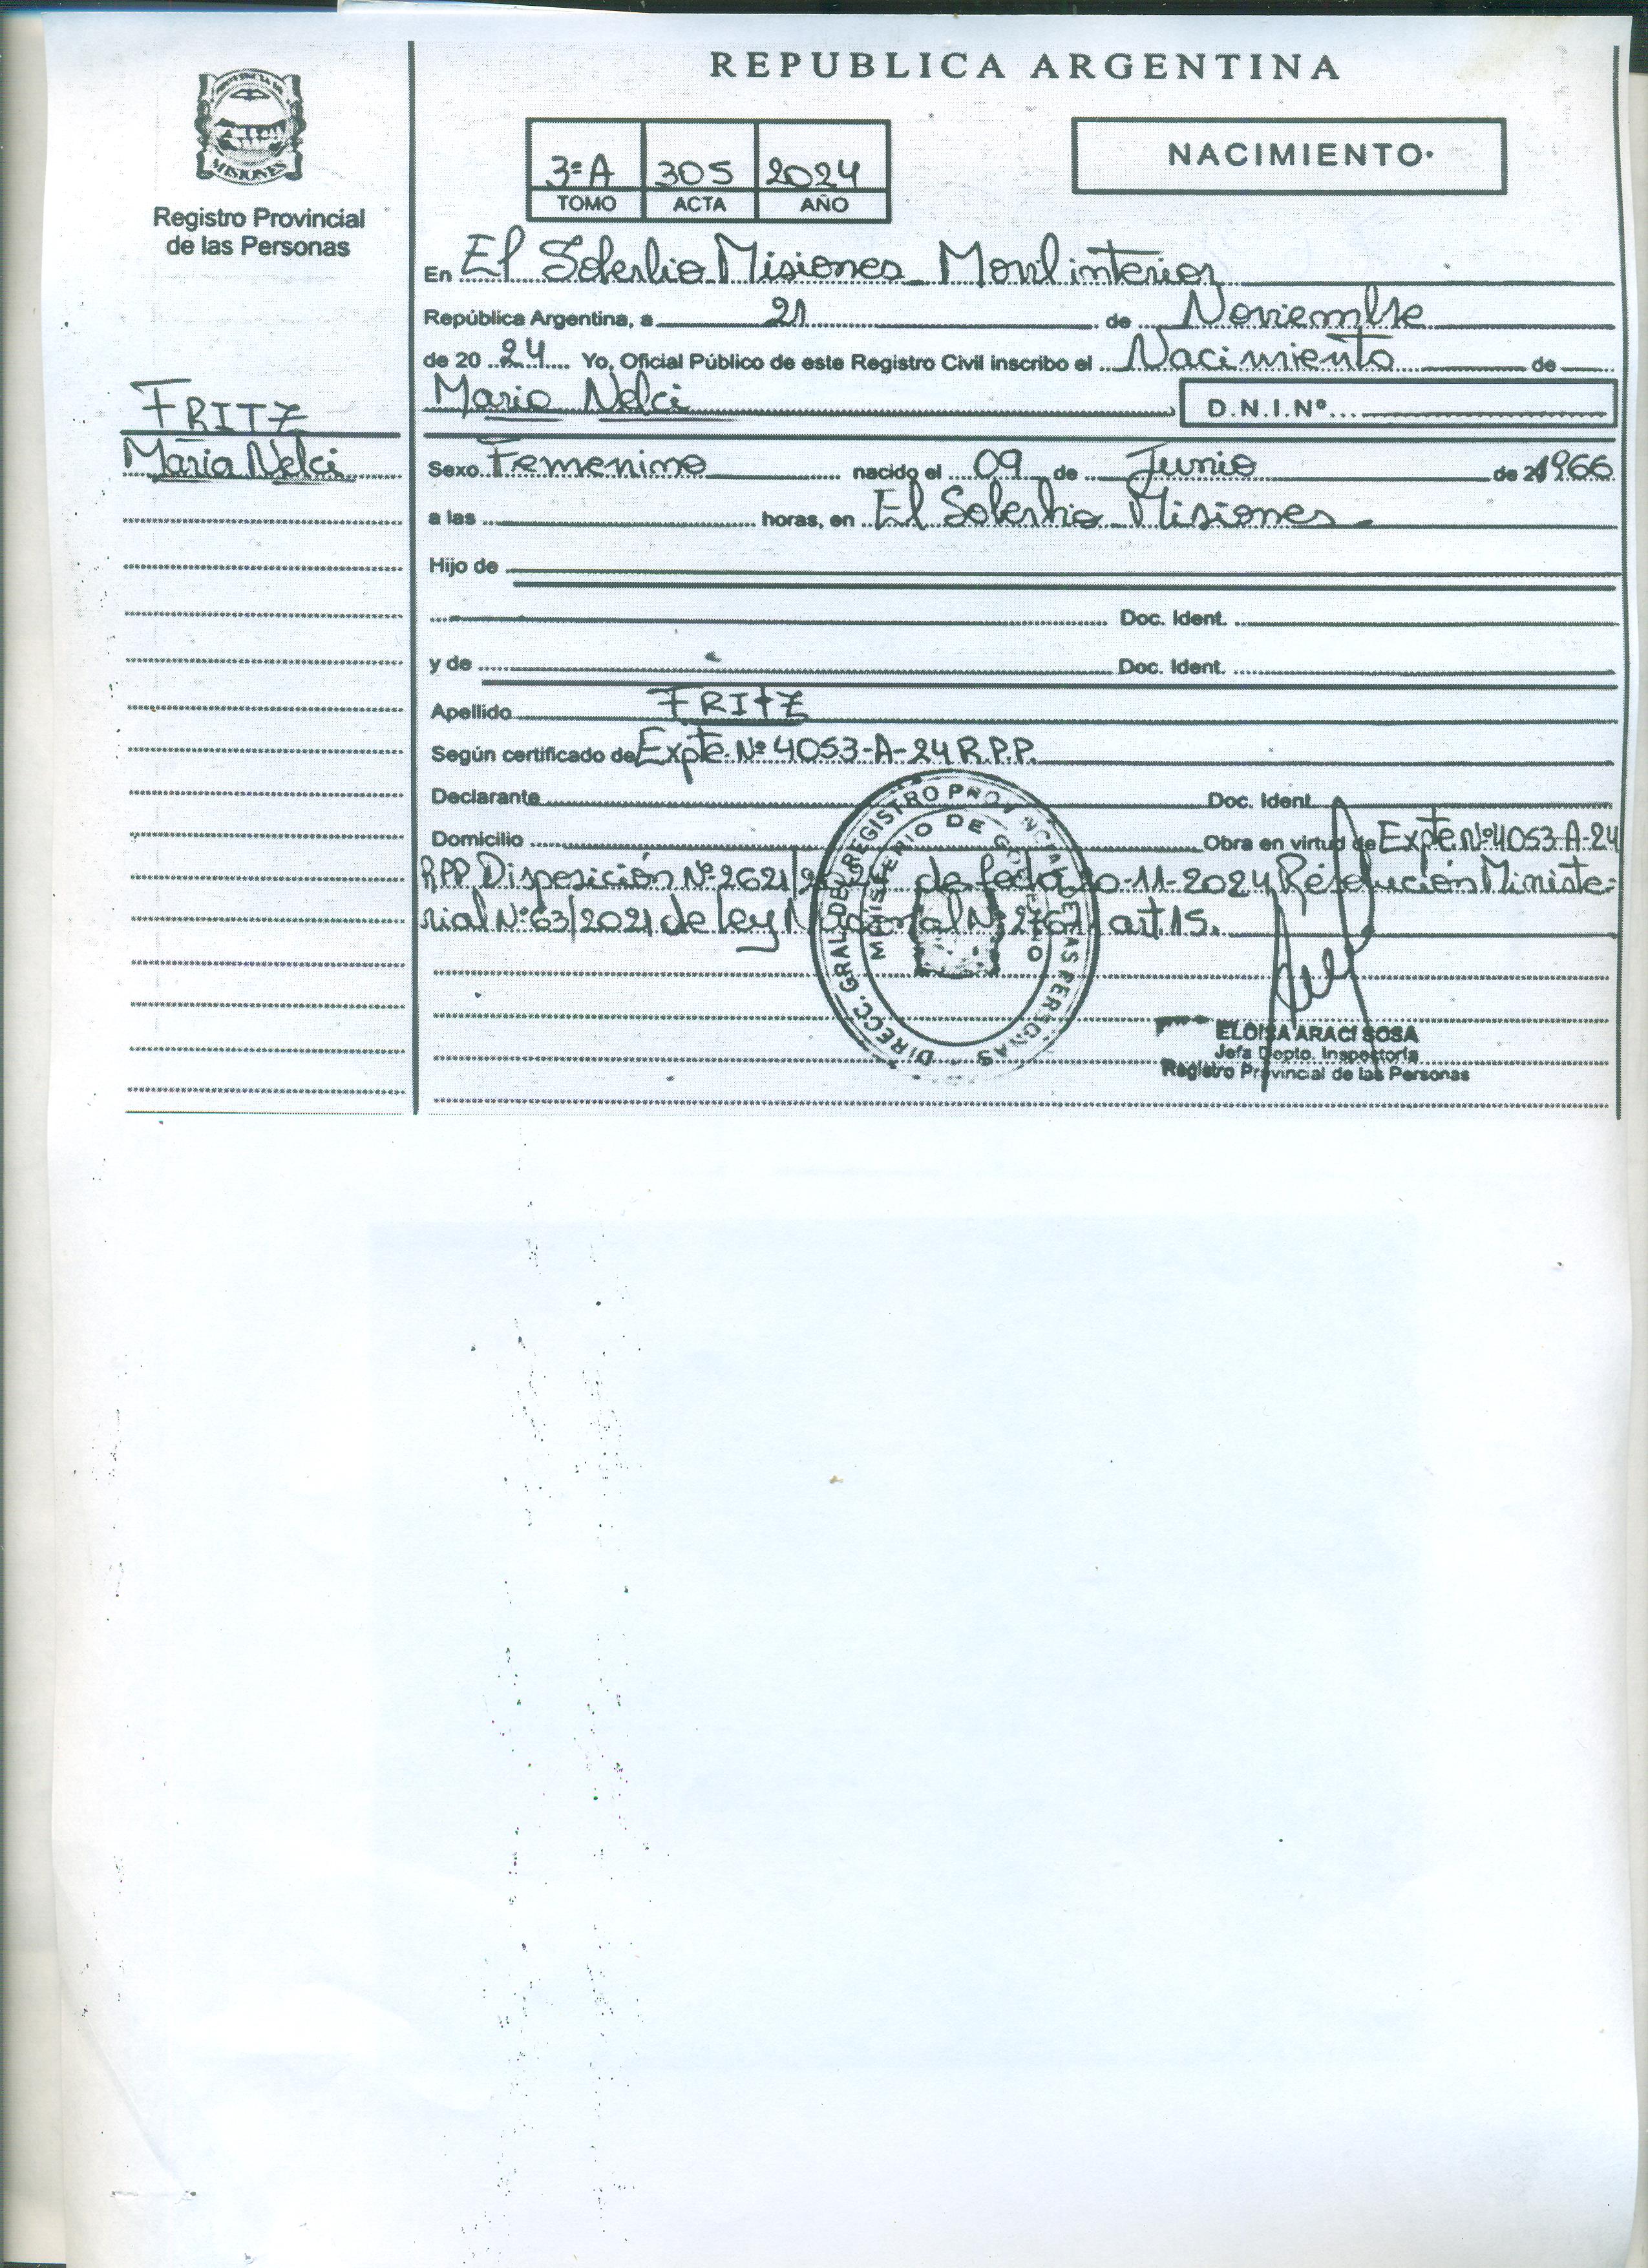 REPUBLICA ARGENTINA
PROVINCIA DE
MISIONES
Registro Provincial
de las Personas
3ª A 305 2024
TOMO ACTA AÑO
NACIMIENTO
En El Soberbio Misiones Movil interior
República Argentina, a 21 de Noviembre
de 20 24 Yo, Oficial Público de este Registro Civil inscribo el Nacimiento de
Maria Nelci D.N.I.Nº
FRITZ
Maria Nelci
Sexo Femenino nacido el 09 de Junio de 1966
a las horas, en El Soberbio Misiones
Hijo de
Doc. Ident.
y de Doc. Ident.
Apellido FRITZ
Según certificado de Expte. Nº 4053-A-24 R.P.P.
Declarante Doc. Ident.
Domicilio Obra en virtud de Expte Nº 4053-A-24
RPP Disposición Nº 2621/ de fecha 20-11-2024 Resolución Ministe-
rial Nº 63/2021 de ley Nacional Nº art. 15.
DIRECC. GRAL. DEL REGISTRO PROVINCIAL DE LAS PERSONAS
MINISTERIO DE GOBIERNO
ELOISA ARACI SOSA
Jefa Depto. Inspectoría
Registro Provincial de las Personas